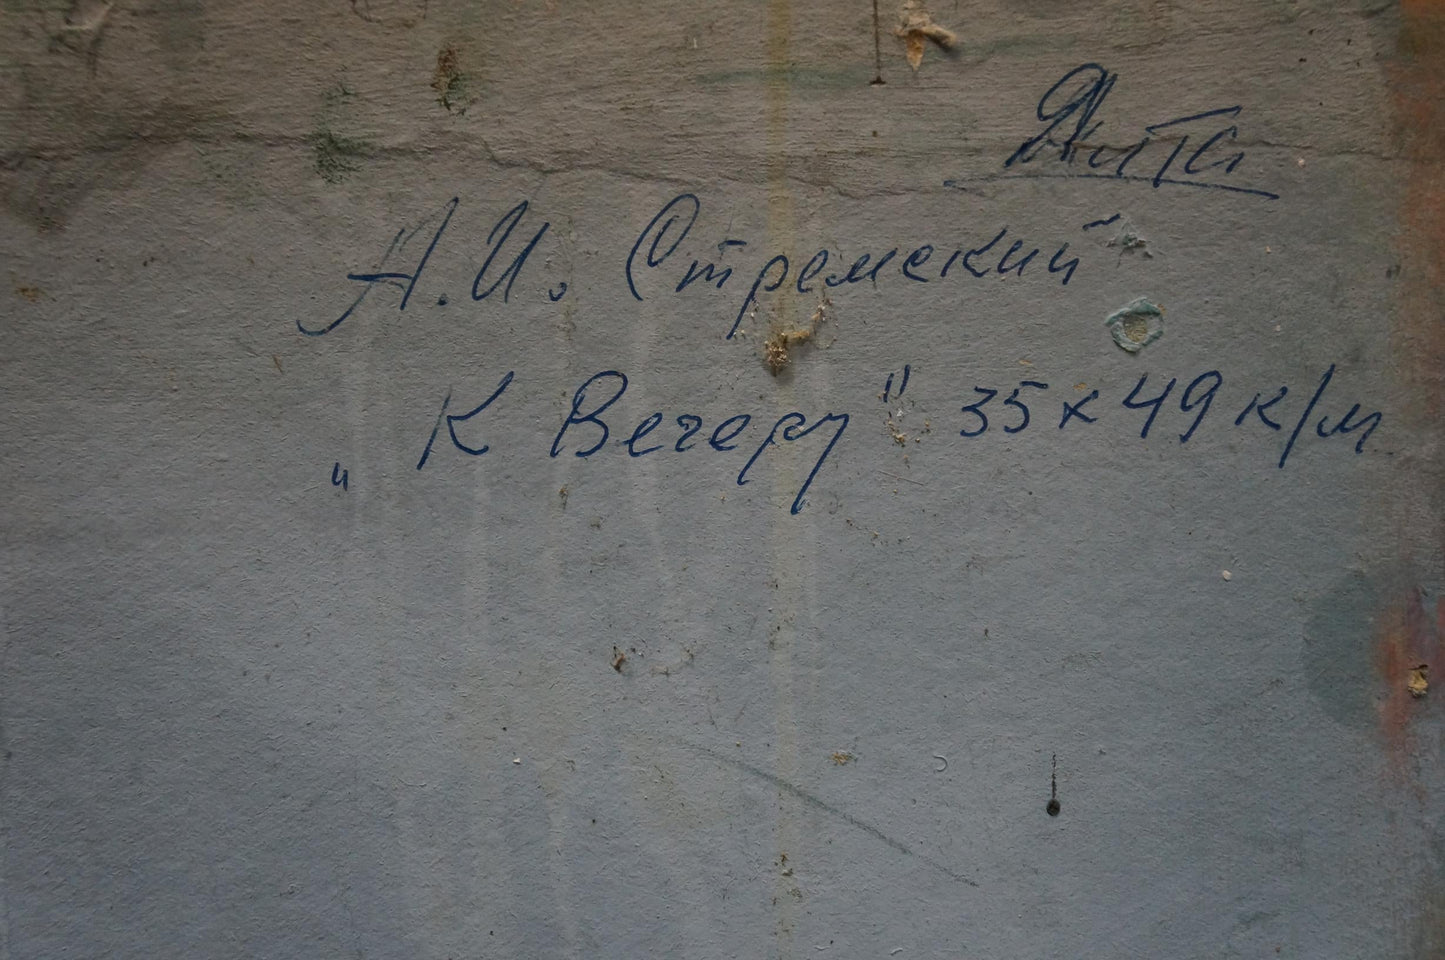 Ялта
А.И. Стремский
„К Вечеру" 35х49 к/м